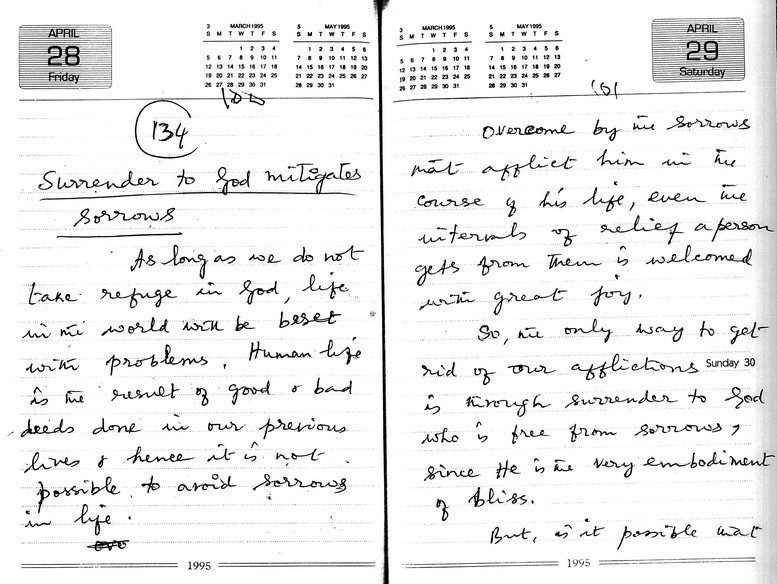 APRIL
28
Friday
3 MARCH 1995
S M T W T F S
1 2 3 4
5 6 7 8 9 10 11
12 13 14 15 16 17 18
19 20 21 22 23 24 25
26 27 28 29 30 31
5 MAY 1995
S M T W T F S
1 2 3 4 5 6
7 8 9 10 11 12 13
14 15 16 17 18 19 20
21 22 23 24 25 26 27
28 29 30 31
134
Surrender to God mitigates
sorrows
As long as we do not
take refuge in God, life
in the world will be beset
with problems. Human life
is the result of good & bad
deeds done in our previous
lives & hence it is not
possible to avoid sorrows
in life.
1995
3 MARCH 1995
S M T W T F S
1 2 3 4
5 6 7 8 9 10 11
12 13 14 15 16 17 18
19 20 21 22 23 24 25
26 27 28 29 30 31
5 MAY 1995
S M T W T F S
1 2 3 4 5 6
7 8 9 10 11 12 13
14 15 16 17 18 19 20
21 22 23 24 25 26 27
28 29 30 31
APRIL
29
Saturday
Overcome by the sorrows
that afflict him in the
course of his life, even the
intervals of relief a person
gets from them is welcomed
with great joy.
So, the only way to get
rid of our afflictions Sunday 30
is through surrender to God
who is free from sorrows,
since He is the very embodiment
of bliss.
But, is it possible that
1995